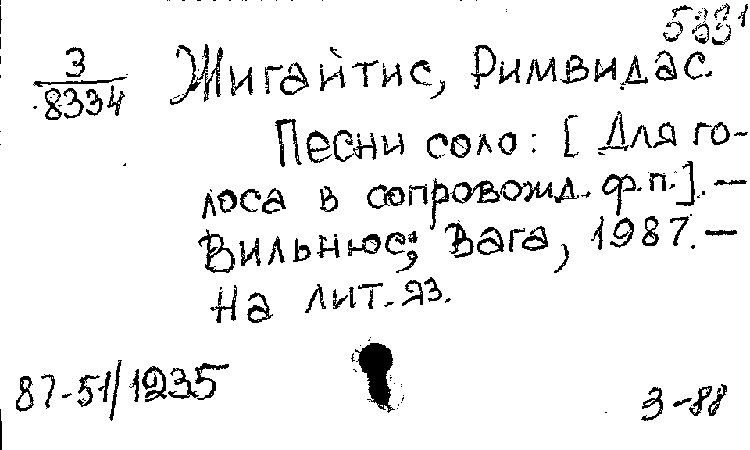 5331
З
8334
Жигайтис, Римвидас.
Песни соло: [Для го-
лоса в сопровожд. ф.п.]. —
Вильнюс; Вага, 1987. —
На лит. яз.
87-51/1235
З-88